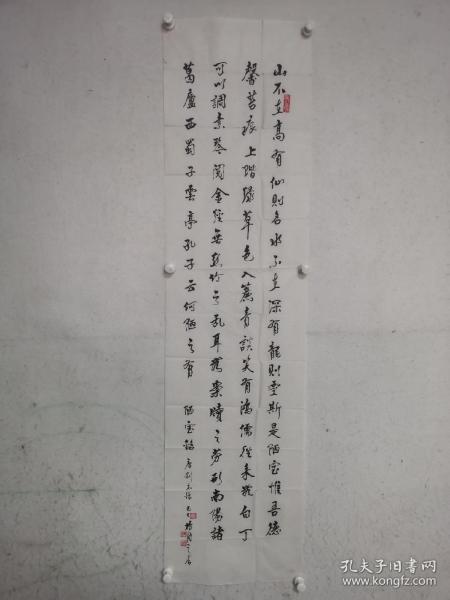 山不在高有仙则名水不在深有龍则靈斯是陋室惟吾德
馨苔痕上階绿草色入簾青談笑有鴻儒往来無白丁
可以調素琴閲金经無丝竹之乱耳無案牘之劳形南陽諸
葛廬西蜀子雲亭孔子云何陋之有 陋室銘 唐刘禹锡
孔夫子旧书网
kongfz.com